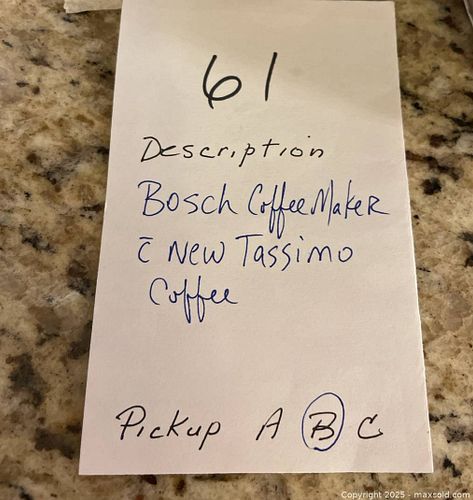 61
Description
Bosch Coffee Maker
c̄ New Tassimo
Coffee
Pickup A B C
Copyright 2025 - maxsold.com